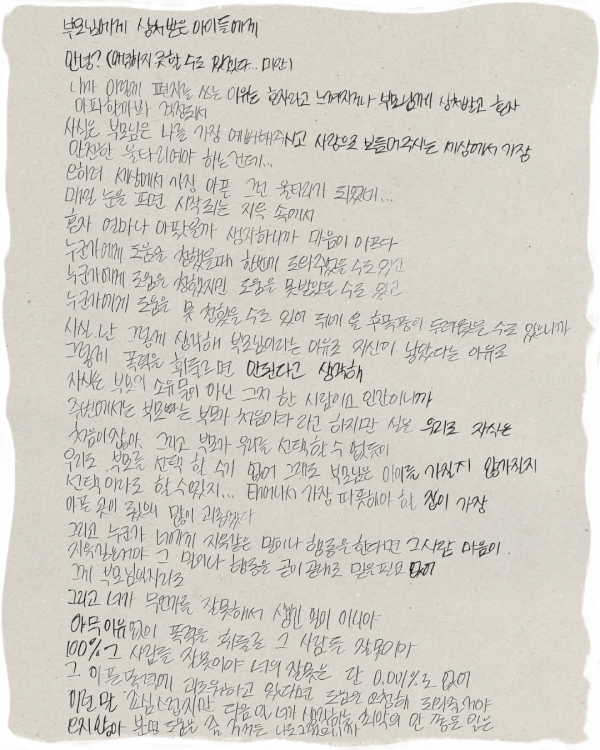 부모님에게 상처받은 아이들에게
안녕? (안녕하지 못할 수도 있겠다... 미안)
내가 이렇게 편지를 쓰는 이유는 혼자라고 느껴지거나 부모님께 상처받고 혼자
아파할까봐 걱정되서
사실은 부모님은 나를 가장 예뻐해주시고 사랑으로 보듬어주시는 세상에서 가장
안전한 울타리여야 하는건데...
오히려 세상에서 가장 아픈 그런 울타리가 되었네...
매일 눈을 뜨면 시작되는 지옥 속에서
혼자 얼마나 아팠을까 생각하니까 마음이 아프다
누군가에게 도움을 청했을때 한번에 도와줬을 수도 있고
누군가에게 도움을 청했지만 도움을 못받았을 수도 있고
누군가에게 도움을 못 청했을 수도 있어 뒤에 올 후폭풍이 두려웠을 수도 있으니까
사실 난 그렇게 생각해 부모님이라는 이유로 자신이 낳았다는 이유로
그렇게 폭력을 휘두르면 안된다고 생각해
자식은 부모의 소유물이 아닌 그저 한 사람이고 인간이니까
주변에서는 부모는 부모가 처음이다 라고 하지만 실은 우리도 자식은
처음이잖아. 그리고 부모가 우리를 선택할 수 없듯이
우리도 부모를 선택 할 수가 없어 그래도 부모님은 아이를 가질지 안가질지
선택이라도 할 수 있지... 태어나서 가장 따뜻해야 할 집이 가장
아픈 곳이 되었으니 많이 괴로웠다
그리고 누군가 너에게 지옥같은 말이나 행동을 한다면 그 사람 마음이
지옥같은거야 그 말이나 행동을 곧이곧대로 믿을 필요 없어
그게 부모님일지라도
그리고 너가 무언가를 잘못해서 생긴 일이 아니야
아무 이유 없이 폭력을 휘두른 그 사람들 잘못이야
100% 그 사람들 잘못이야 너의 잘못은 단 0.001%도 없어
그 아픈 폭력에 괴로워하고 있다면 도움을 요청해 도와줄거야
이런 말 조심스럽지만 다음 일 너가 생각하는 최악의 안 좋은 일은
오지 않아 분명 도움을 줄